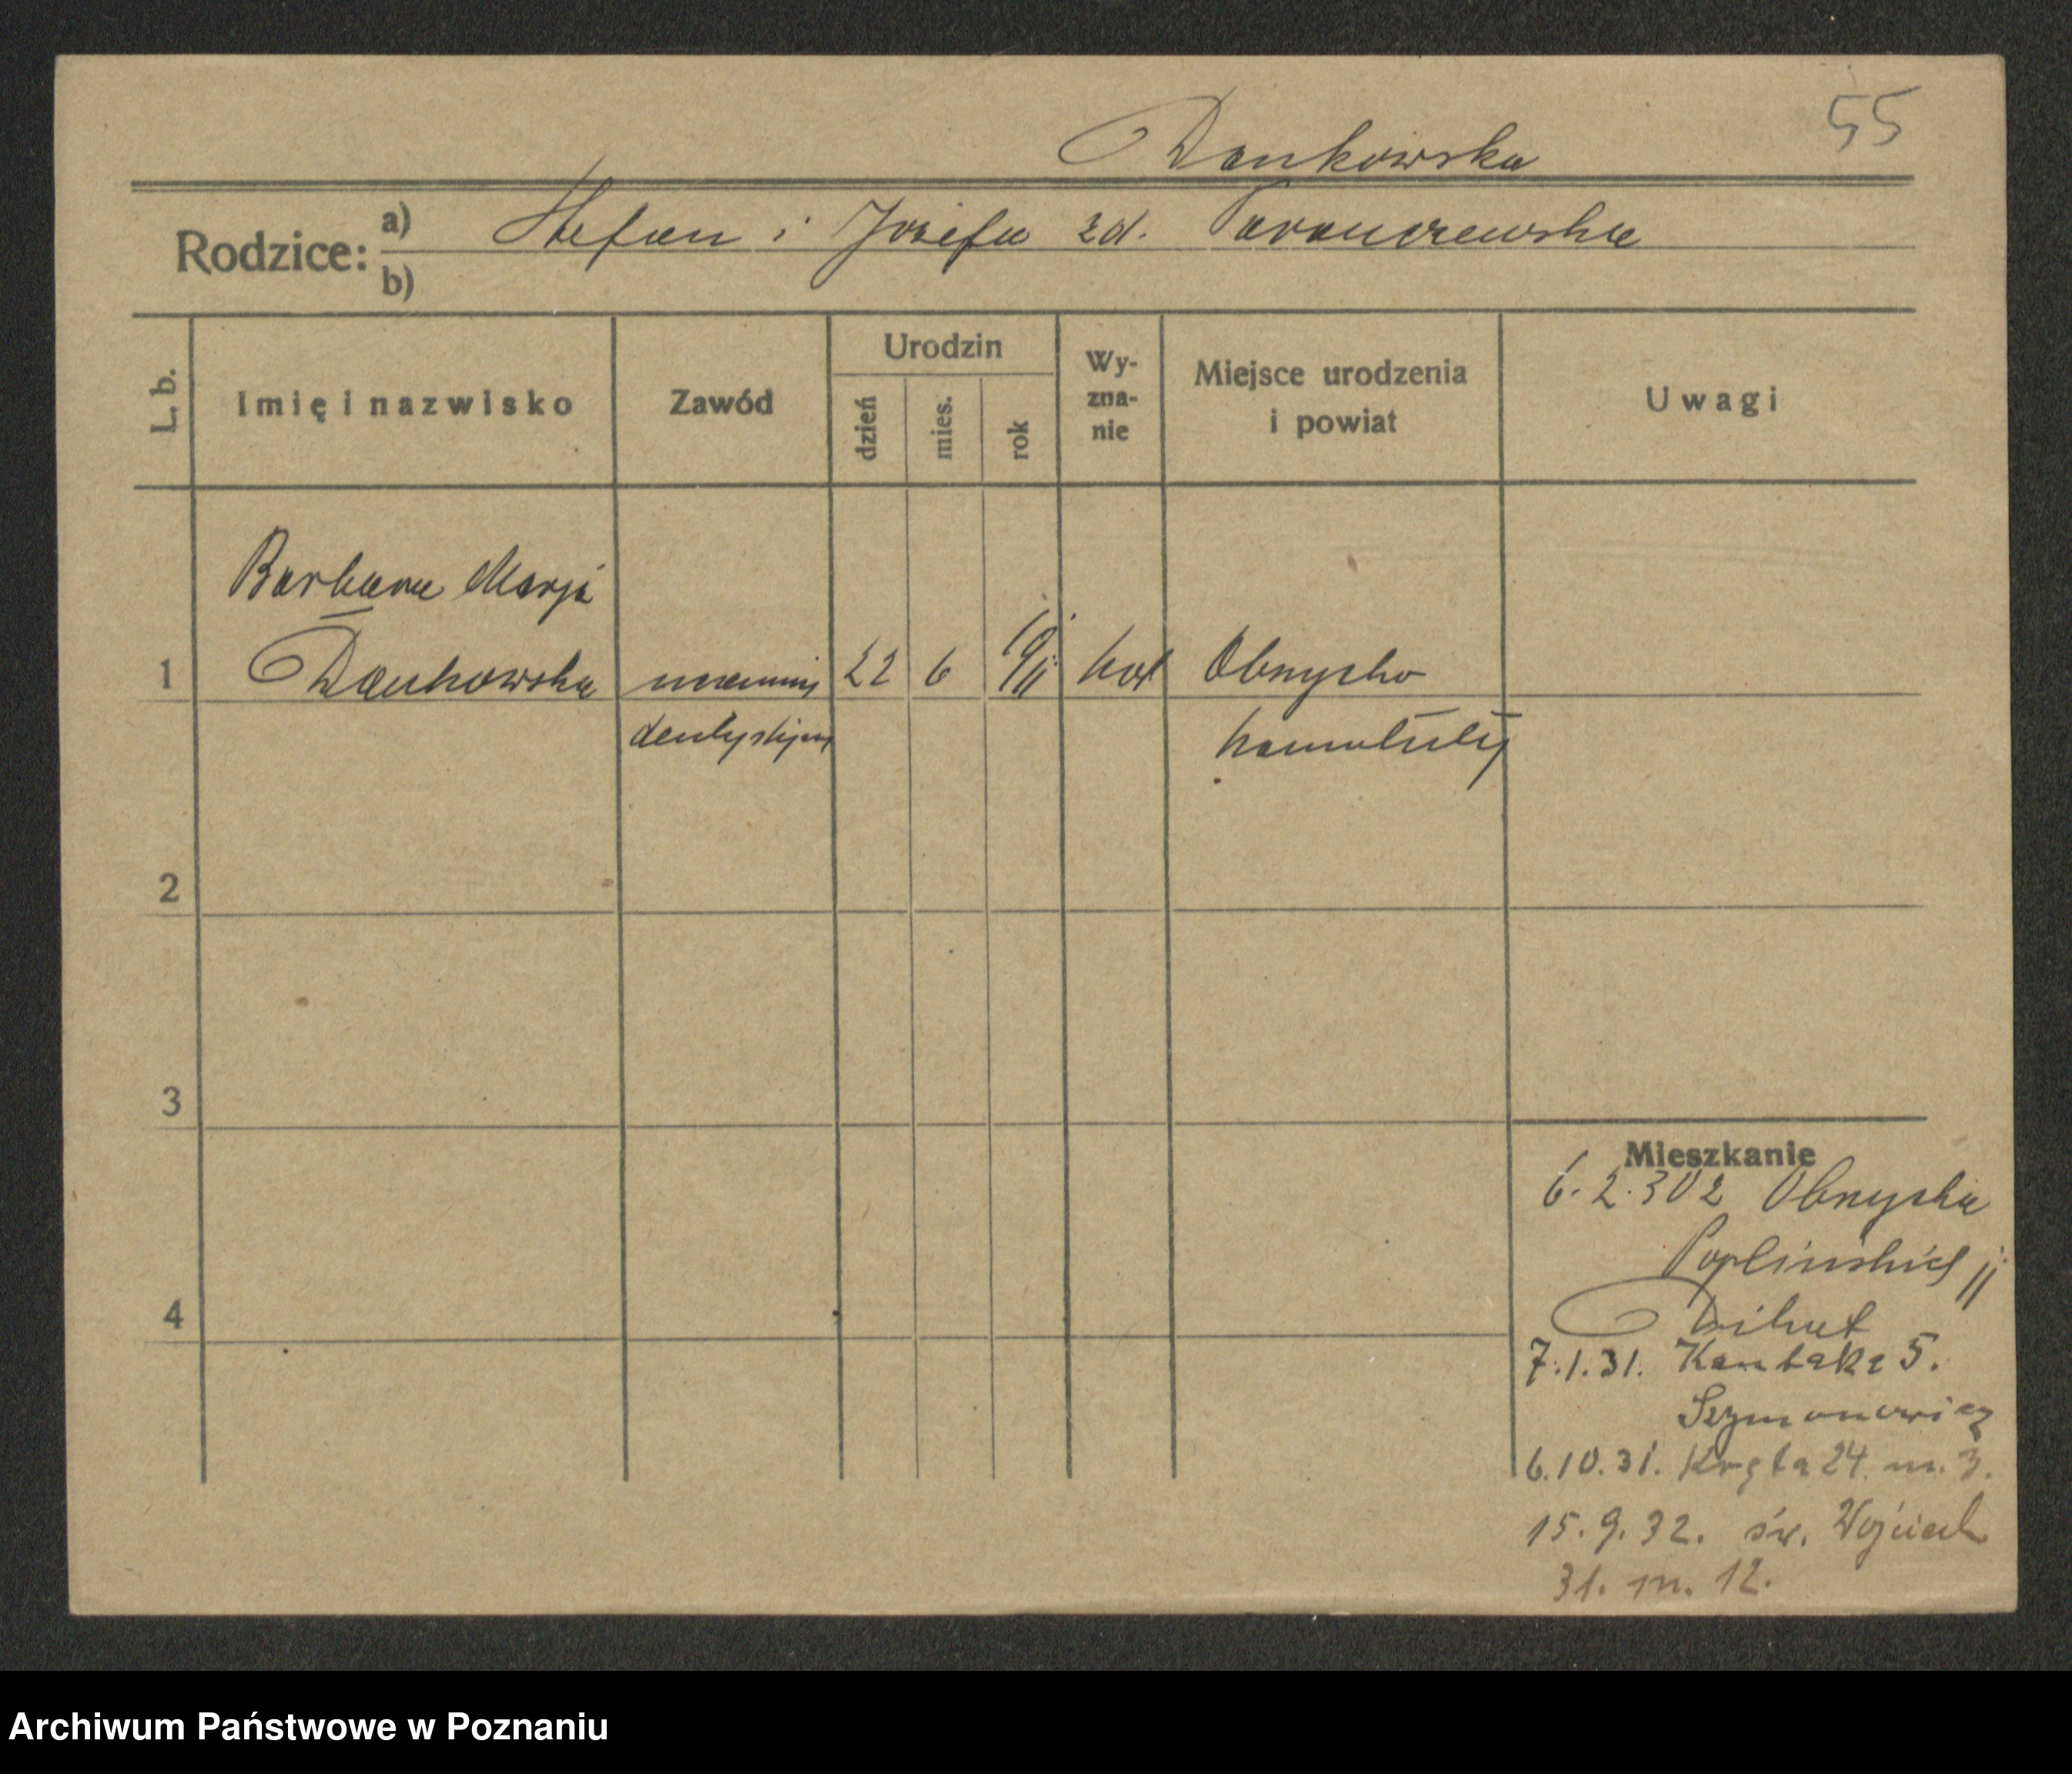 55
Dankowska
Rodzice: a) Stefan i Józefa zd. Taranczewska
b)
L. b. Imię i nazwisko Zawód Urodzin dzień mies. rok Wy-zna-nie Miejsce urodzenia i powiat Uwagi
Barbara Marja
1 Dankowska 22 6 11 kat Obrzycko
dentystyczny Szamotuły
2
3
4
Mieszkanie
6. 2. 30 z Obrzycka
Poplińskich 11
7.1.31. Kantaka 5.
Szymonowicz
6.10.31. Kręta 24. m. 3.
15. 9. 32. św. Wojciech
31. m. 12.
Archiwum Państwowe w Poznaniu